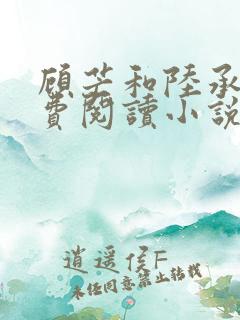 顾芒和陸承
費閱讀小說
逍遥侯F
未经同意禁止转载